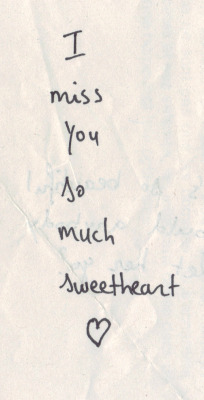 I
miss
you
so
much
sweetheart
♡